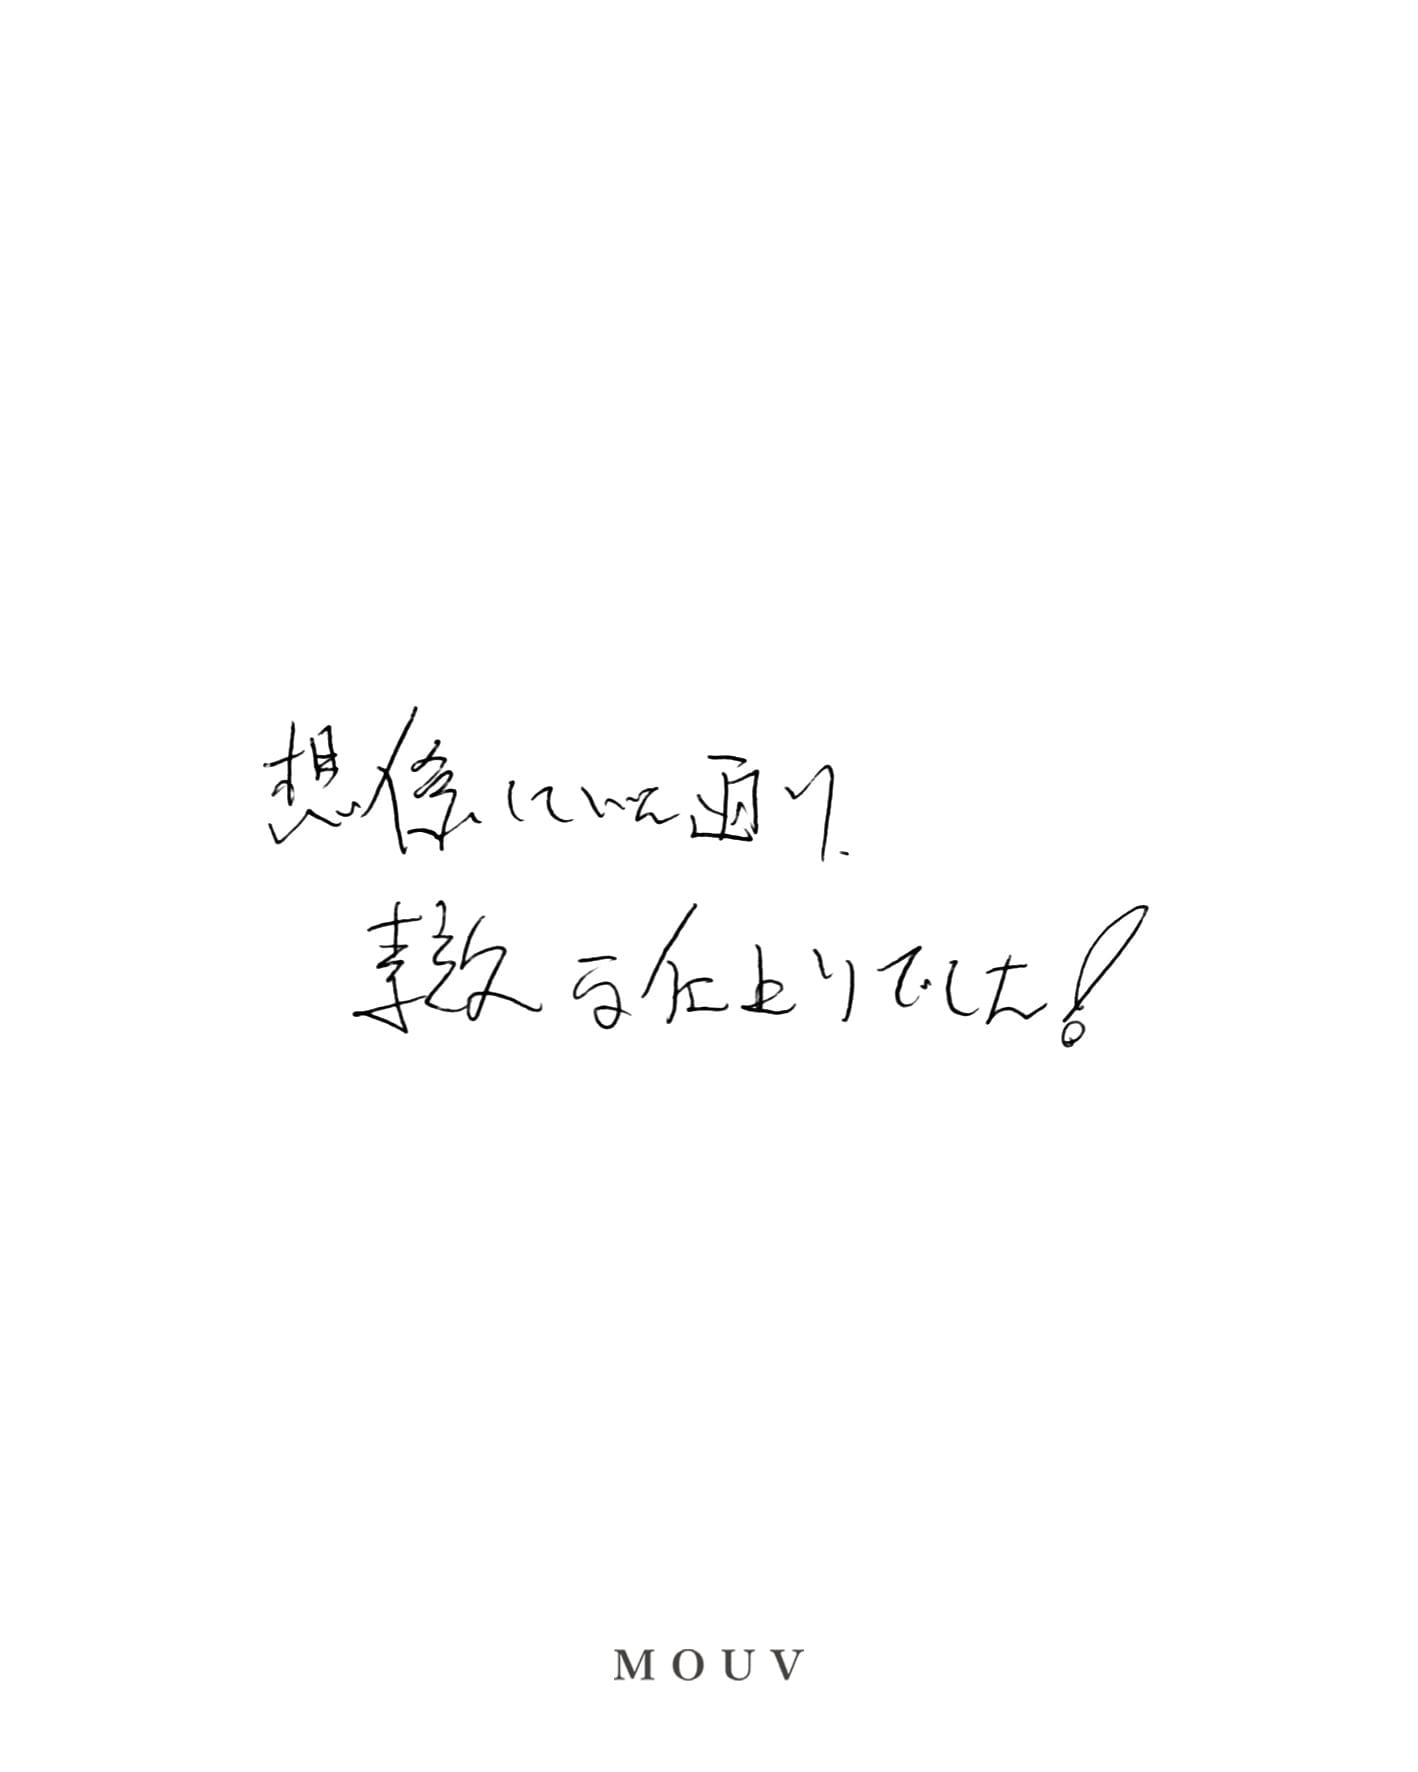 想像していた通り、
素敵な仕上りでした!
MOUV